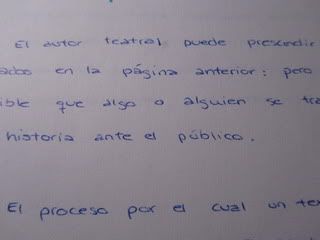 El autor teatral puede prescindir
ados en la página anterior: pero
ible que algo o alguien se tra
historia ante el público.
El proceso por el cual un tex